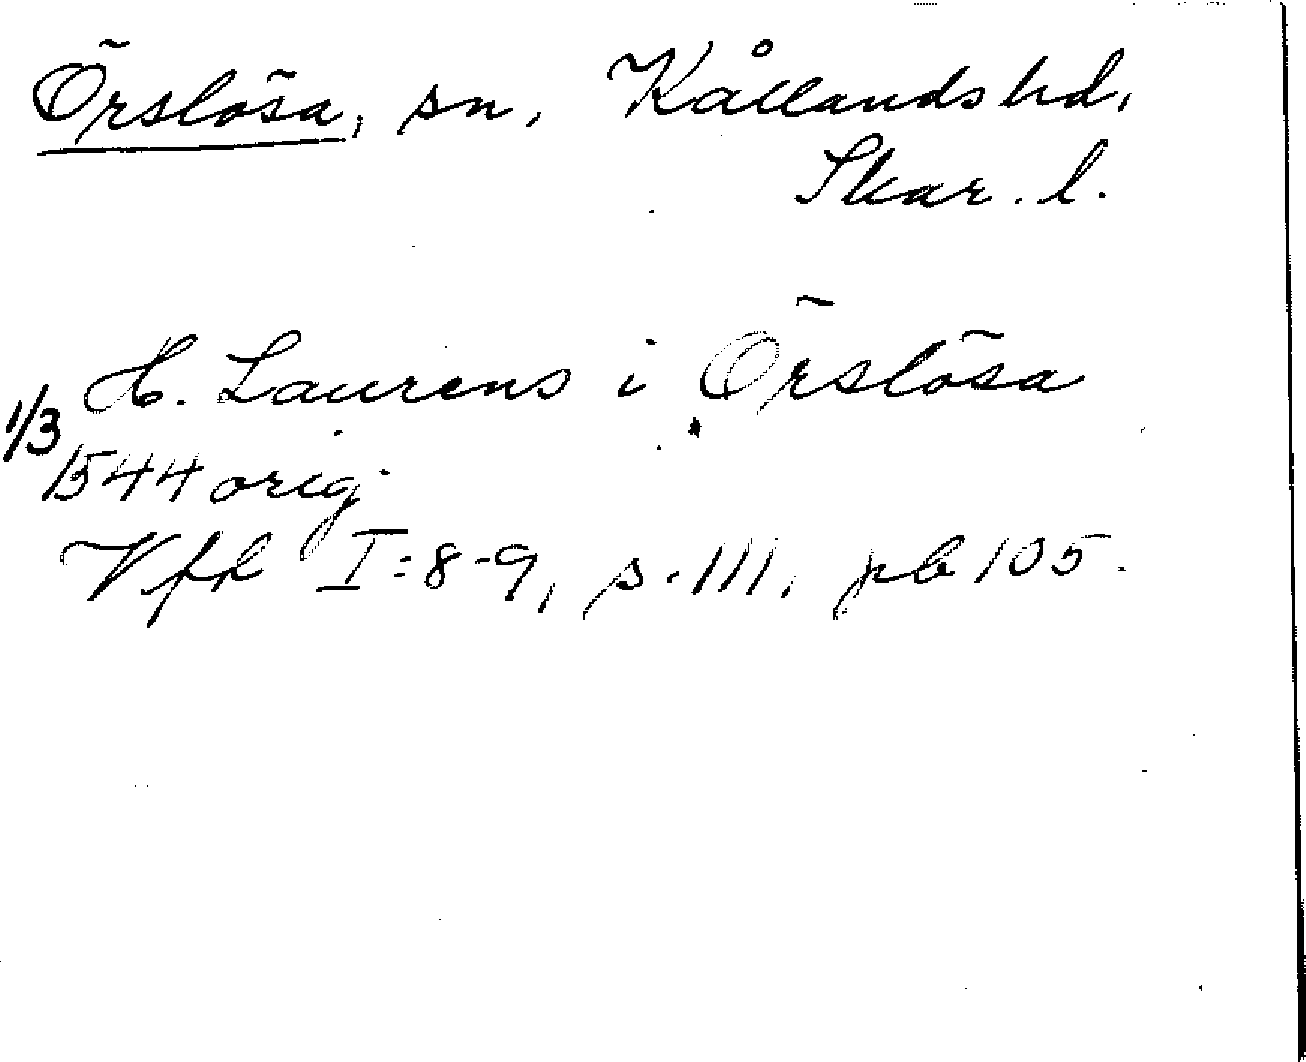 Örslösa, sn, Kållands hd,
Skar. l.
H. Laurens i Örslösa
1/3
1544 orig.
Vfft I:8-9, s. 111, pb 105.